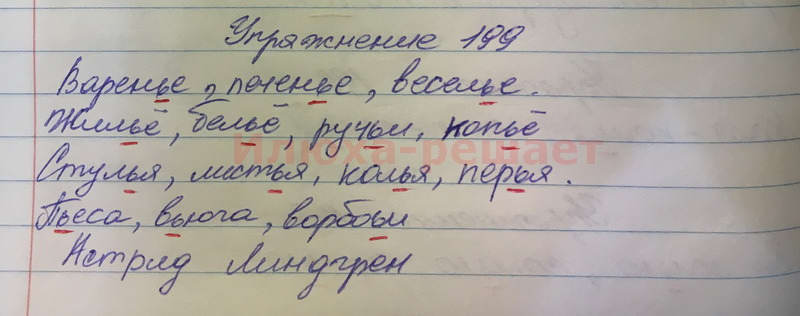 Упражнение 199
Варенье, печенье, веселье.
Жильё, бельё, ручьи, копьё
Илюха-решает
Стулья, листья, колья, перья.
Пьеса, вьюга, воробьи
Астрид Линдгрен